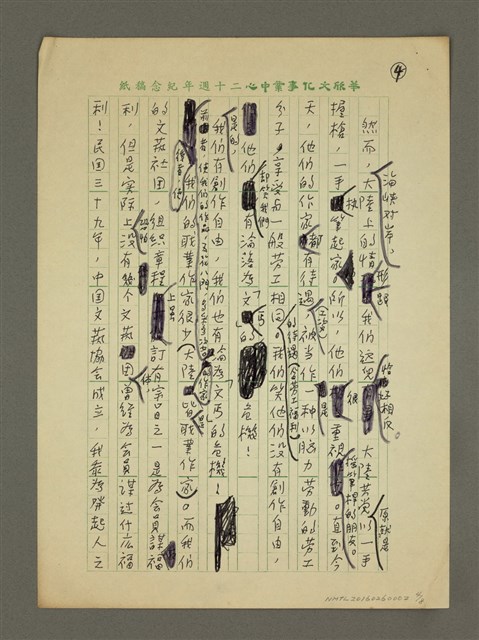 ④
華欣文化事業中心二十週年紀念稿紙
然而,海峽對岸,大陸上的情形跟我們這兒恰恰好相反。大陸共黨原就是以一手
握槍,一手執筆起家。所以,他們很重視搖筆桿的朋友。直至今
天,他們的作家都有待遇,被當作是一種以腦力勞動的勞工
分子,享受與一般勞工相同的待遇(勞工福利)。我們笑他們沒有創作自由,
他們卻笑我們有淪為文丐的危機!
是的,我們有創作自由,我們也有淪為文丐的危機!
我們的職業作家很少(大陸皆是職業作家)。而我們
的文藝社團,組織章程上雖訂有宗旨之一是為會員謀福
利,但是實際上恐怕沒有幾個文藝社團曾經為會員謀過什麼福
利!民國三十九年,中國文藝協會成立,我忝為發起人之
NMTL20160260002